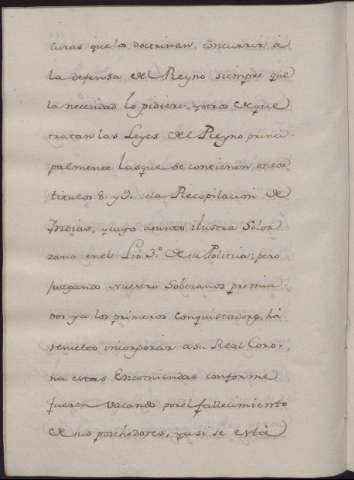 curas que los doctrinan, concurrir á
la defensa del Reyno siempre que
la necesidad lo pidiere, y otras de que
tratan las Leyes del Reyno princi-
palmente las que se contienen en los
titulos 8 y 9. de la Recopilacion de
Indias, y cuyo asunto ilustra Solor-
zano en el Lib. 3.º de su Politica; pero
juzgando nuestro Soberano premia-
dos ya los primeros Conquistadores, há
resuelto incorporar a su Real Coro-
na estas Encomiendas conforme
fueren vacando por el fallecimiento
de sus posehedores, y asi se está